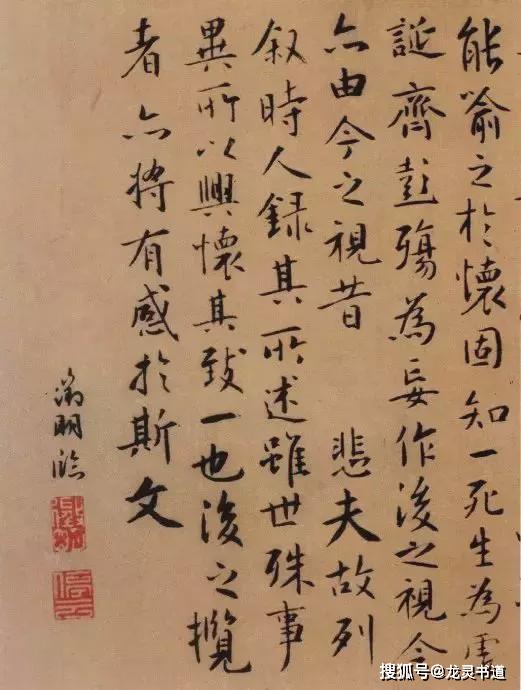 能喻之於懷固知一死生為虛
誕齊彭殤為妄作後之視今
亦由今之視昔 悲夫故列
叙時人錄其所述雖世殊事
異所以興懷其致一也後之攬
者亦將有感於斯文
徵明臨
搜狐号@龙灵书道